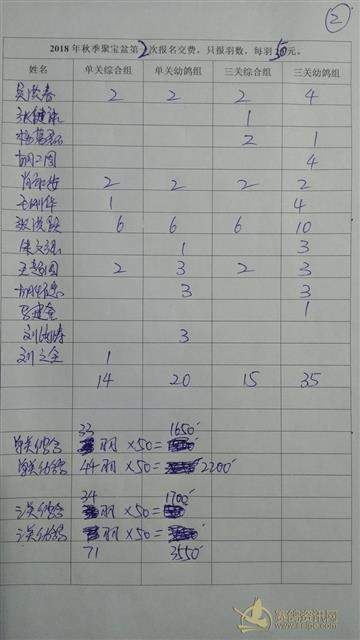 2
2018年秋季聚宝盆第2次报名交费，只报羽数，每羽50元。
姓名 单关综合组 单关幼鸽组 三关综合组 三关幼鸽组
吴洪春 2 2 2 4
张健 1
杨 2 1
胡二周 4
肖 2 2 2 2
王 华 1 4
张洪 6 6 6 10
朱文强 1 3
王超国 2 3 2 3
胡 3 3
马建全 1
刘 3
刘文全 1
14 20 15 35
33 1650
单关综合 羽×50=
单关幼鸽 44羽×50= 2200
34 1700
三关综合 羽×50=
三关幼鸽 羽×50=
71 3550
赛鸽资讯网